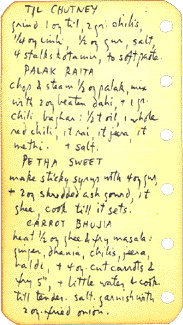 TIL CHUTNEY
grind 1 oz til, 2 gr. chilis
1/4 oz imli. 1/2 oz gur, salt,
4 stalks kotamir, to soft paste.
PALAK RAITA
chop & steam 1/2 oz palak, mix
with 20z beaten dahi, + 1 gr.
chili. baghar: 1/2 t oil, 1 whole
red chili, 1t rai, 1t jeera, 1t
methi. + salt.
PETHA SWEET
make sticky syrup with 4oz gur,
+ 2oz shredded ash gourd, 1t
ghee. cook till it sets.
CARROT BHUJIA
heat 1/2 oz ghee & fry masala:
ginger, dhania, chiles, jeera,
haldi, + 4 oz. cut carrots &
fry 5", + little water, & cook
till tender. salt. garnish with
2 oz. fried onion.